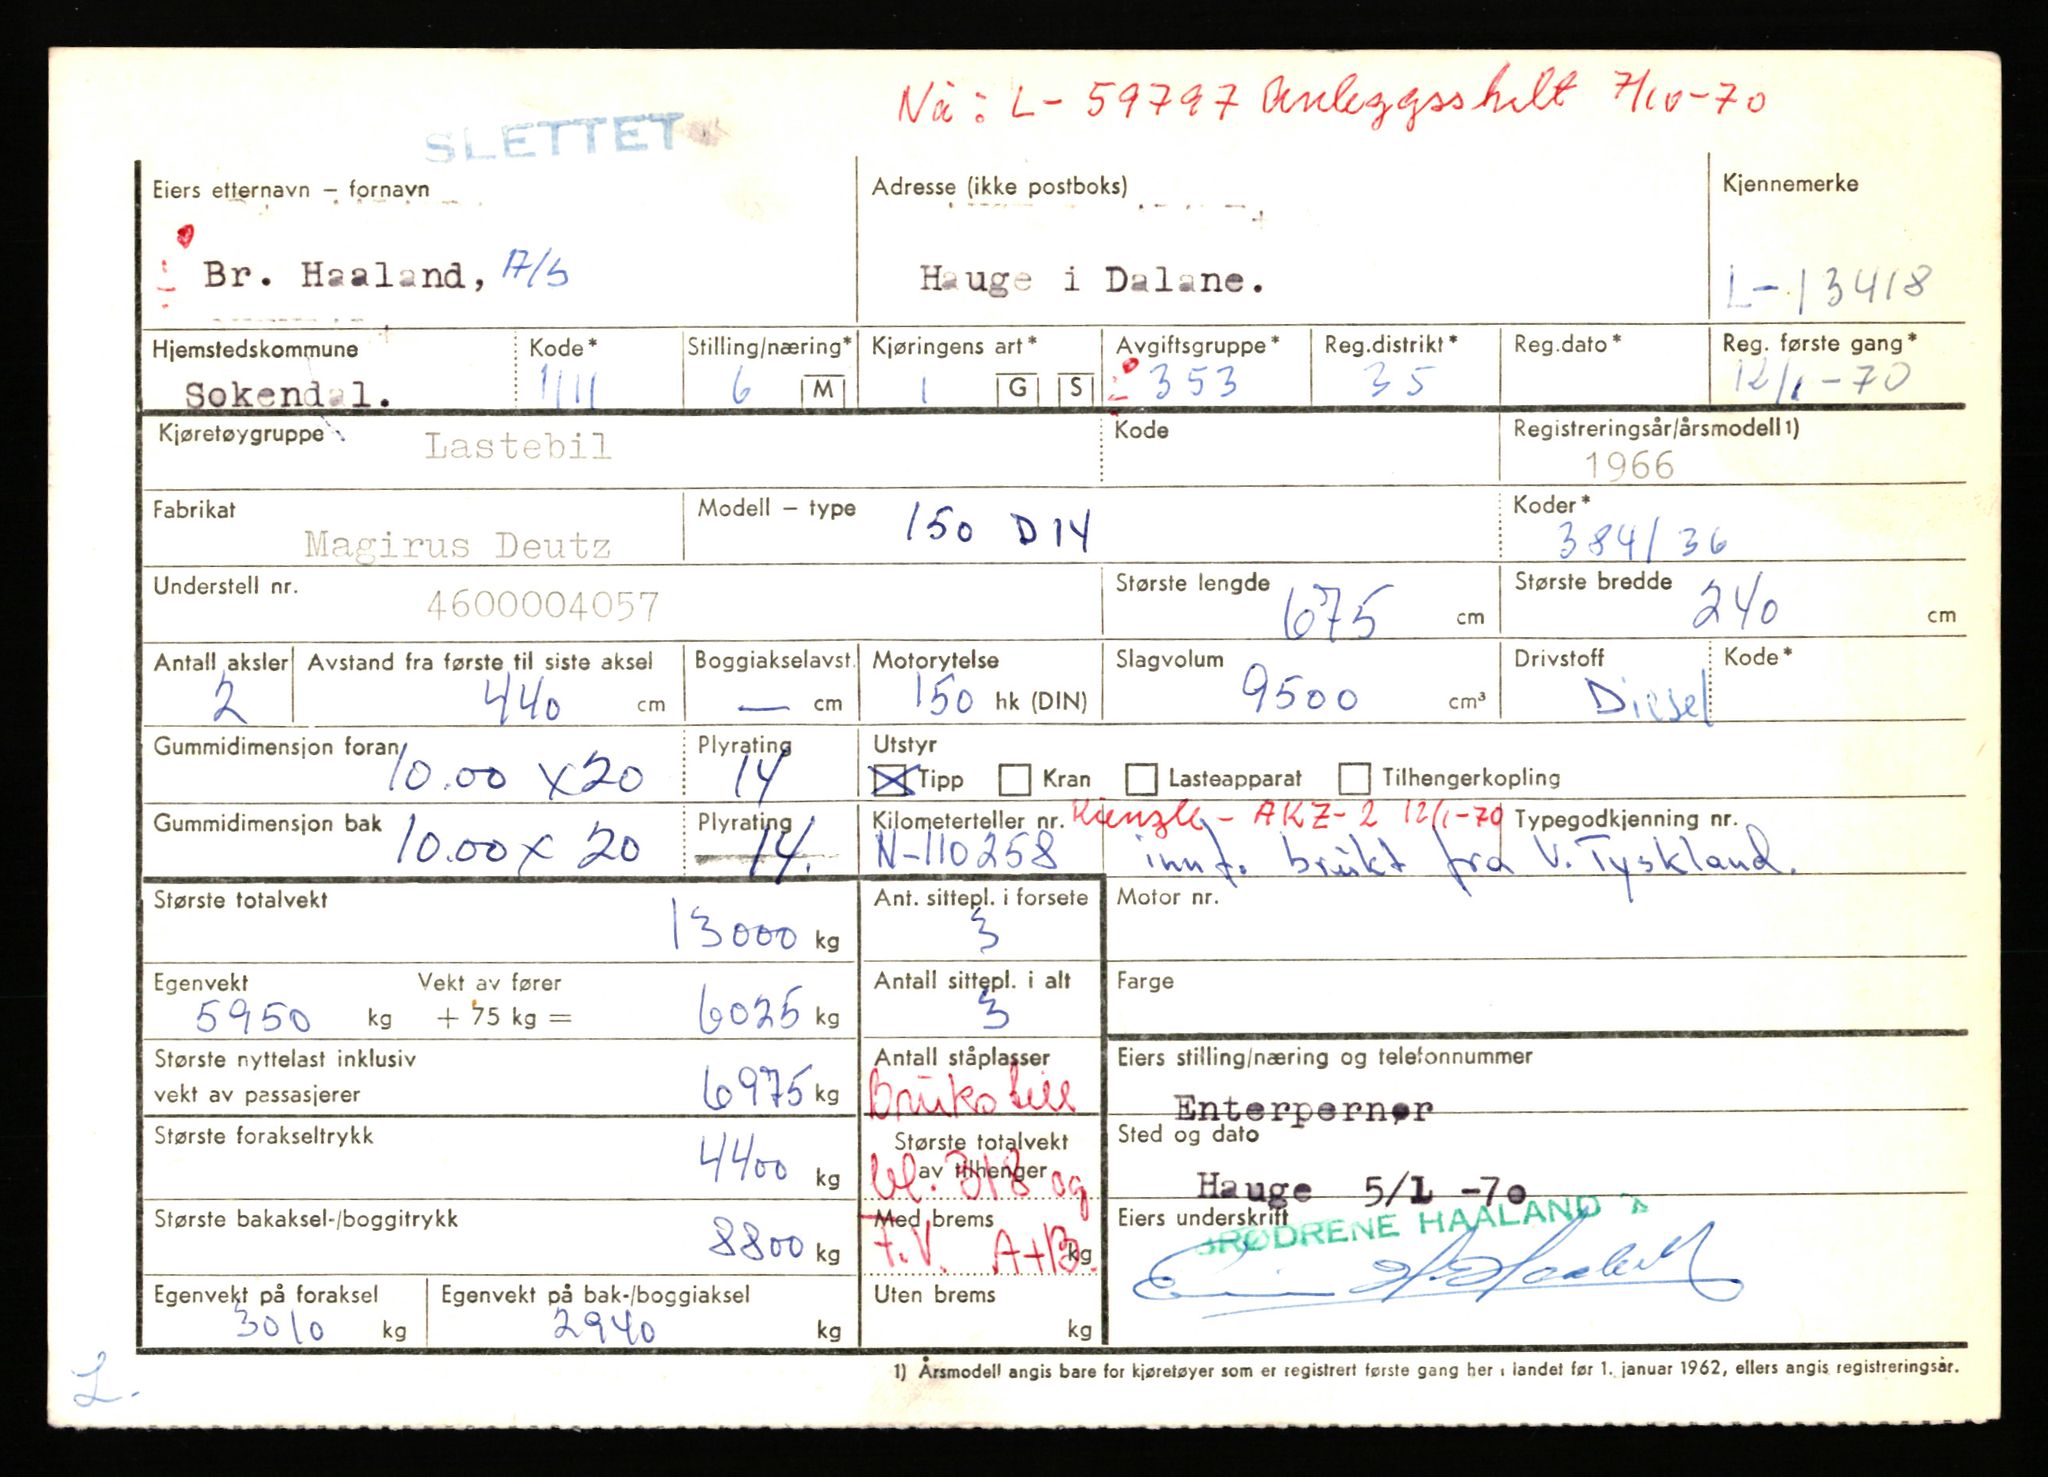 Nå: L - 59797 Anleggsskilt 7/10-70
SLETTET
Eiers etternavn – fornavn Adresse (ikke postboks) Kjennemerke
Br. Haaland, A/S Hauge i Dalane. L-13418
Hjemstedskommune Kode* Stilling/næring* Kjøringens art* Avgiftsgruppe* Reg.distrikt* Reg.dato* Reg. første gang*
Sokendal. 1111 6 M 1 G S 353 35 12/1-70
Kjøretøygruppe Lastebil Kode Registreringsår/årsmodell 1)
1966
Fabrikat Modell – type 150 D 14 Koder*
Magirus Deutz 384/36
Understell nr. Største lengde Største bredde
4600004057 675 cm 240 cm
Antall aksler Avstand fra første til siste aksel Boggiakselavst. Motorytelse Slagvolum Drivstoff Kode*
2 440 cm — cm 150 hk (DIN) 9500 cm³ Diesel
Gummidimensjon foran Plyrating Utstyr
10.00 x 20 14 Tipp Kran Lasteapparat Tilhengerkopling
Gummidimensjon bak Plyrating Kilometerteller nr. Kienzle - AKZ-2 12/1-70 Typegodkjenning nr.
10.00 x 20 14. N-110258 innf. brukt fra V. Tyskland.
Største totalvekt Ant. sittepl. i forsete Motor nr.
13000 kg 3
Egenvekt Vekt av fører Antall sittepl. i alt Farge
5950 kg + 75 kg = 6025 kg 3
Største nyttelast inklusiv Antall ståplasser Eiers stilling/næring og telefonnummer
vekt av passasjerer 6975 kg Enterpernør
Største forakseltrykk Største totalvekt Sted og dato
4400 kg av tilhenger og Hauge 5/1 -70
Største bakaksel-/boggitrykk Med brems Eiers underskrift BRØDRENE HAALAND
8800 kg 7.V. A+B. kg
Egenvekt på foraksel Egenvekt på bak-/boggiaksel Uten brems
3010 kg 2940 kg kg
1) Årsmodell angis bare for kjøretøyer som er registrert første gang her i landet før 1. januar 1962, ellers angis registreringsår.
L.